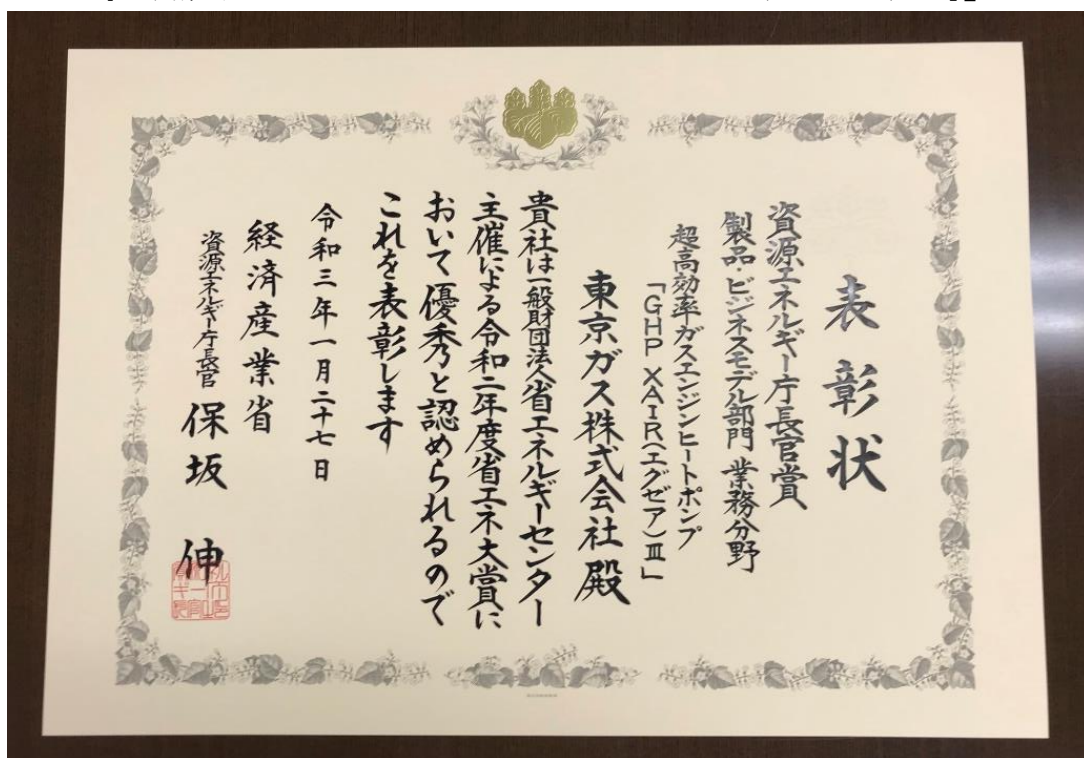 表彰状
資源エネルギー庁長官賞
製品・ビジネスモデル部門 業務分野
超高効率ガスエンジンヒートポンプ
「GHP XAIR(エグゼア)Ⅲ」
東京ガス株式会社 殿
貴社は一般財団法人省エネルギーセンター
主催による令和二年度省エネ大賞に
おいて優秀と認められるので
これを表彰します
令和三年一月二十七日
経済産業省
資源エネルギー庁長官 保坂 伸